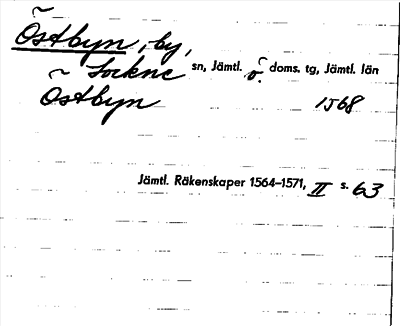 Östbyn, by,
Lockne sn, Jämtl. ö. doms. tg, Jämtl. län
Östbyn 1568
Jämtl. Räkenskaper 1564–1571, II s. 63